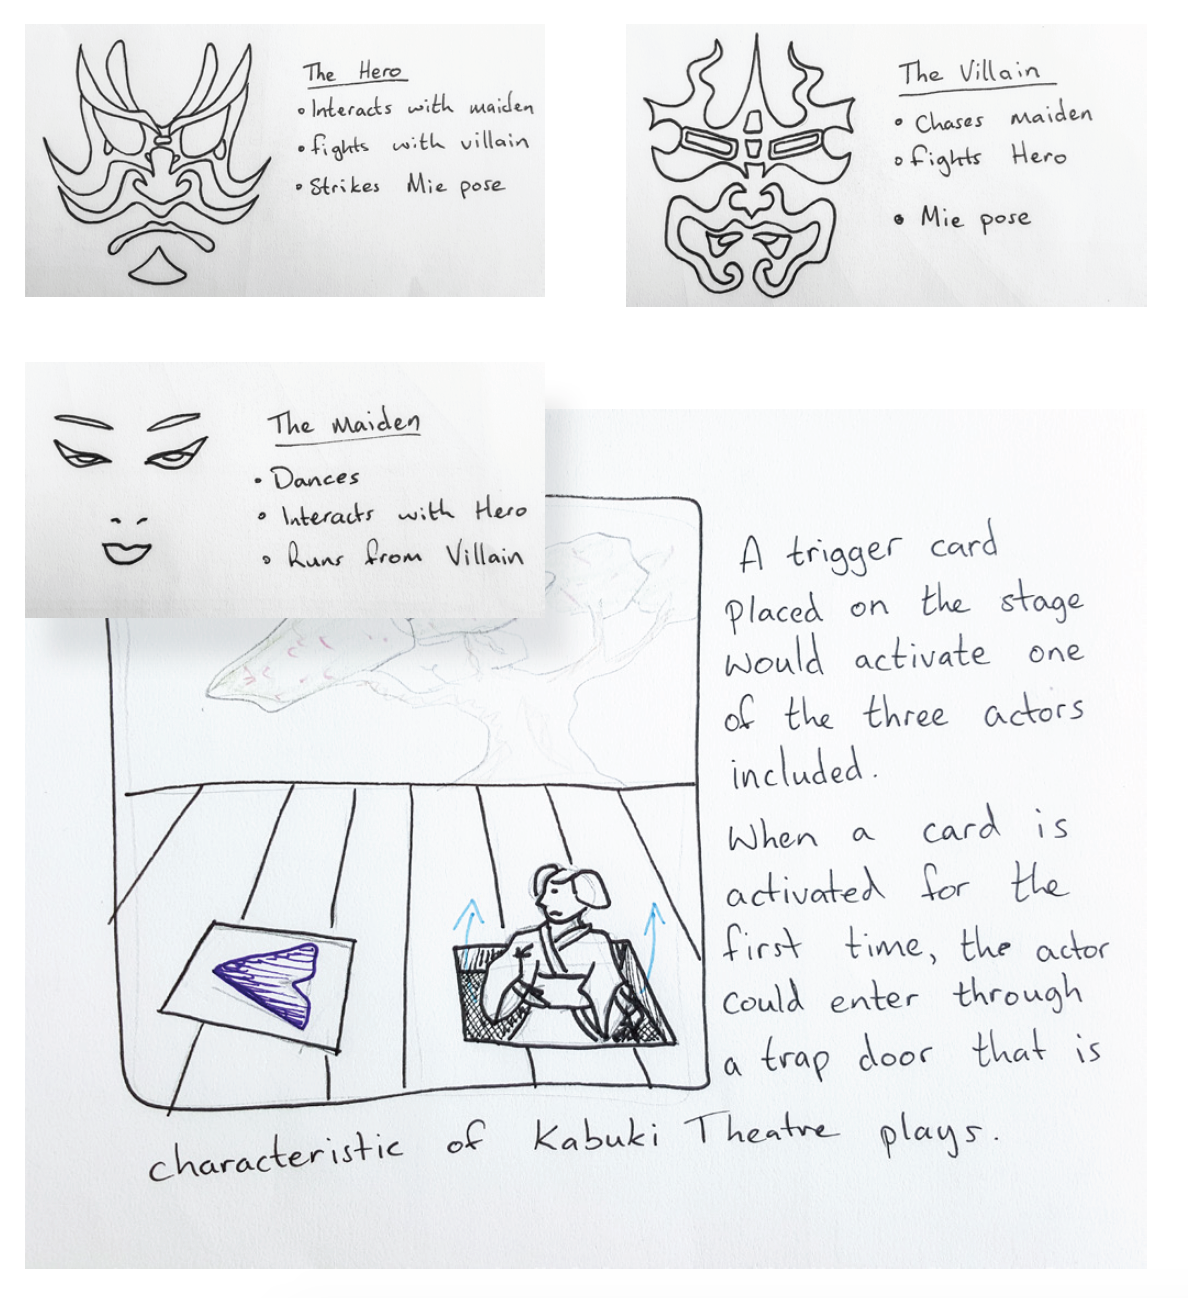 The Hero
• Interacts with maiden
• fights with villain
• Strikes Mie pose
The Villain
• Chases maiden
• fights Hero
• Mie pose
The Maiden
• Dances
• Interacts with Hero
• Runs from Villain
A trigger card
placed on the stage
would activate one
of the three actors
included.
When a card is
activated for the
first time, the actor
could enter through
a trap door that is
characteristic of Kabuki Theatre plays.